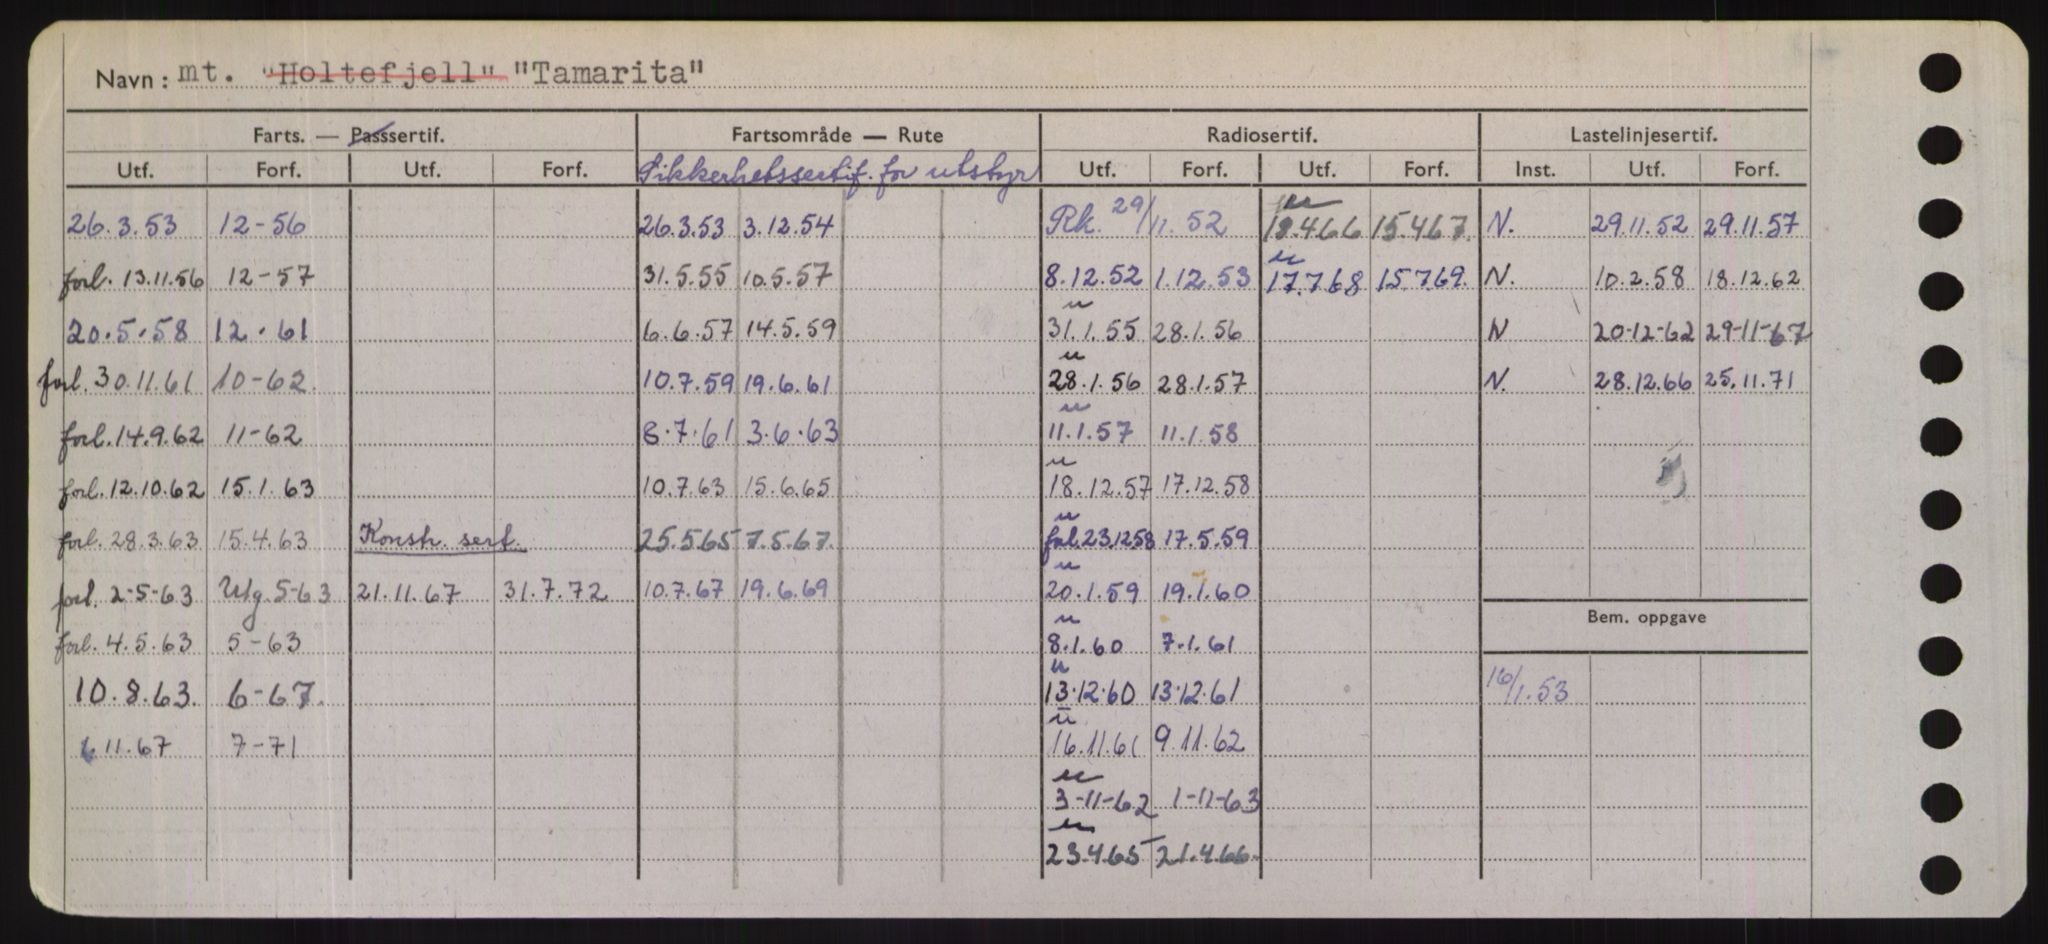 Navn: mt. "Holtefjell" "Tamarita"
Farts. — Passsertif. Fartsområde — Rute Radiosertif. Lastelinjesertif.
Utf. Forf. Utf. Forf. Sikkerhetssertif. for utstyr Utf. Forf. Utf. Forf. Inst. Utf. Forf.
26.3.53 12-56 26.3.53 3.12.54 Rk. 29/11.52 u 18.4.66 15.4.67. N. 29.11.52 29.11.57
forl. 13.11.56 12-57 31.5.55 10.5.57 8.12.52 1.12.53 u 17.7.68 15.7.69. N. 10.2.58 18.12.62
20.5.58 12.61 6.6.57 14.5.59 u 31.1.55 28.1.56 N 20-12-62 29-11-67
forl. 30.11.61 10-62. 10.7.59 19.6.61 u 28.1.56 28.1.57 N. 28.12.66 25.11.71
forl. 14.9.62 11-62 8.7.61 3.6.63 u 11.1.57 11.1.58
forl. 12.10.62 15.1.63 10.7.63 15.6.65 u 18.12.57 17.12.58
forl. 28.3.63 15.4.63 Konstr. sert. 25.5.65 7.5.67. u fal. 23.12.58 17.5.59
forl. 2-5-63 Utg 5-63 21.11.67 31.7.72 10.7.67 19.6.69 u 20.1.59 19.1.60
Bem. oppgave
forl. 4.5.63 5-63 u 8.1.60 7.1.61
10.8.63. 6-67. u 13.12.60 13.12.61 16/1.53
6 11.67 7-71 u 16.11.61 9.11.62
u 3-11-62 1-11-63
u 23.4.65 21.4.66.